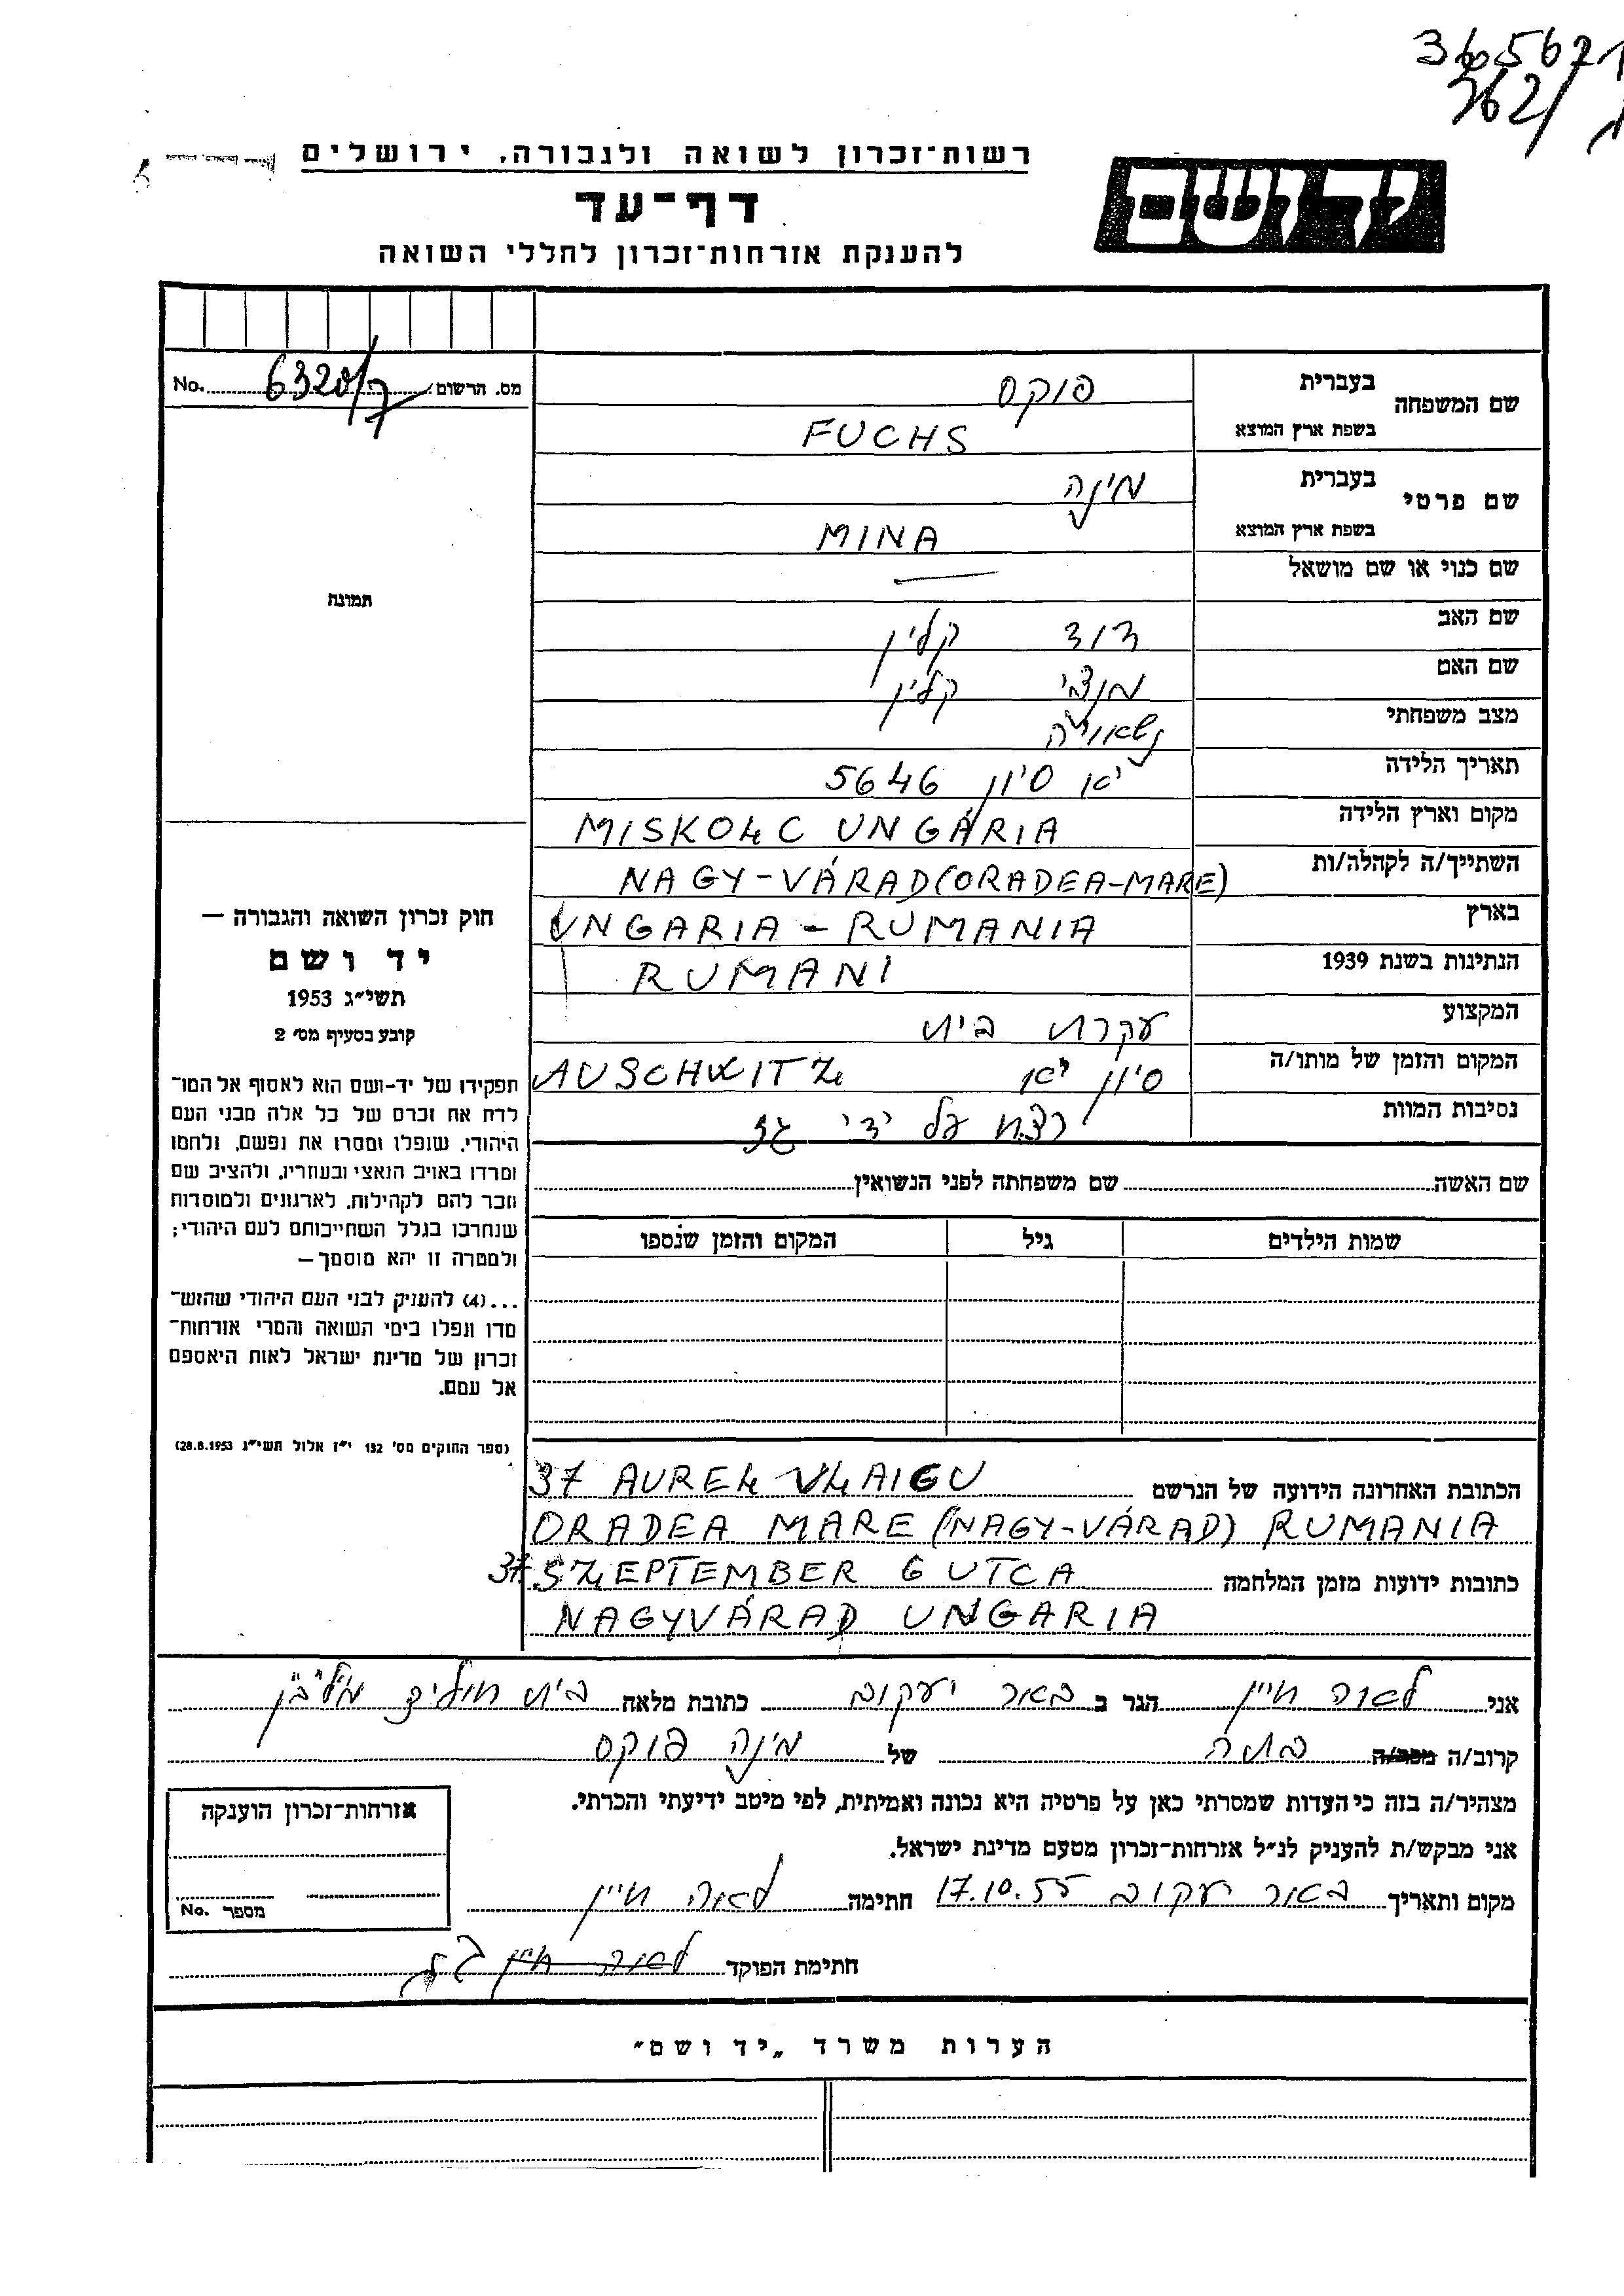 365671
262/
רשות־זכרון לשואה ולגבורה, ירושלים
דף־עד
להענקת אזרחות־זכרון לחללי השואה
יד ושם
No. 6320/7 מס. הרשום
שם המשפחה
בעברית פוקס
בשפת ארץ המוצא FUCHS
שם פרטי
בעברית מינה
בשפת ארץ המוצא MINA
שם כנוי או שם מושאל —
שם האב דוד קליין
שם האם מנצי קליין
מצב משפחתי נשאויה
תאריך הלידה יא סיון 5646
מקום וארץ הלידה MISKOLC UNGÁRIA
השתייך/ה לקהלה/ות NAGY-VÁRAD (ORADEA-MARE)
בארץ UNGARIA - RUMANIA
הנתינות בשנת 1939 RUMANI
המקצוע עקרת בית
המקום והזמן של מותו/ה סיון יא AUSCHWITZ
נסיבות המוות רצח על ידי גז
שם האשה שם משפחתה לפני הנשואין
שמות הילדים גיל המקום והזמן שנספו
תמונה
חוק זכרון השואה והגבורה —
יד ושם
תשי״ג 1953
קובע בסעיף מס׳ 2
תפקידו של יד-ושם הוא לאסוף אל המו־
לדת את זכרם של כל אלה מבני העם
היהודי, שנפלו ומסרו את נפשם, נלחמו
ומרדו באויב הנאצי ובעוזריו, ולהציב שם
וזכר להם לקהילות, לארגונים ולמוסדות
שנחרבו בגלל השתייכותם לעם היהודי;
ולמטרה זו יהא מוסמך —
...(4) להעניק לבני העם היהודי שהוש־
מדו ונפלו בימי השואה והמרי אזרחות־
זכרון של מדינת ישראל לאות היאספם
אל עמם.
(ספר החוקים מס׳ 132 י״ז אלול תשי״ג 28.8.1953)
הכתובת האחרונה הידועה של הנרשם 37 AUREL VLAICU
ORADEA MARE (NAGY-VÁRAD) RUMANIA
כתובות ידועות מזמן המלחמה 37. SZEPTEMBER 6 UTCA
NAGYVÁRAD UNGARIA
אני לאורה חיין הגר ב באר יעקוב כתובת מלאה בית חולים מלבן
קרוב/ה מכר/ה בתה של מינה פוקס
מצהיר/ה בזה כי העדות שמסרתי כאן על פרטיה היא נכונה ואמיתית, לפי מיטב ידיעתי והכרתי.
אני מבקש/ת להעניק לנ״ל אזרחות־זכרון מטעם מדינת ישראל.
מקום ותאריך באר יעקוב 17.10.55 חתימה לאורה חיין
חתימת הפוקד לאורה חיין
אזרחות־זכרון הוענקה
מספר No.
הערות משרד „יד ושם״